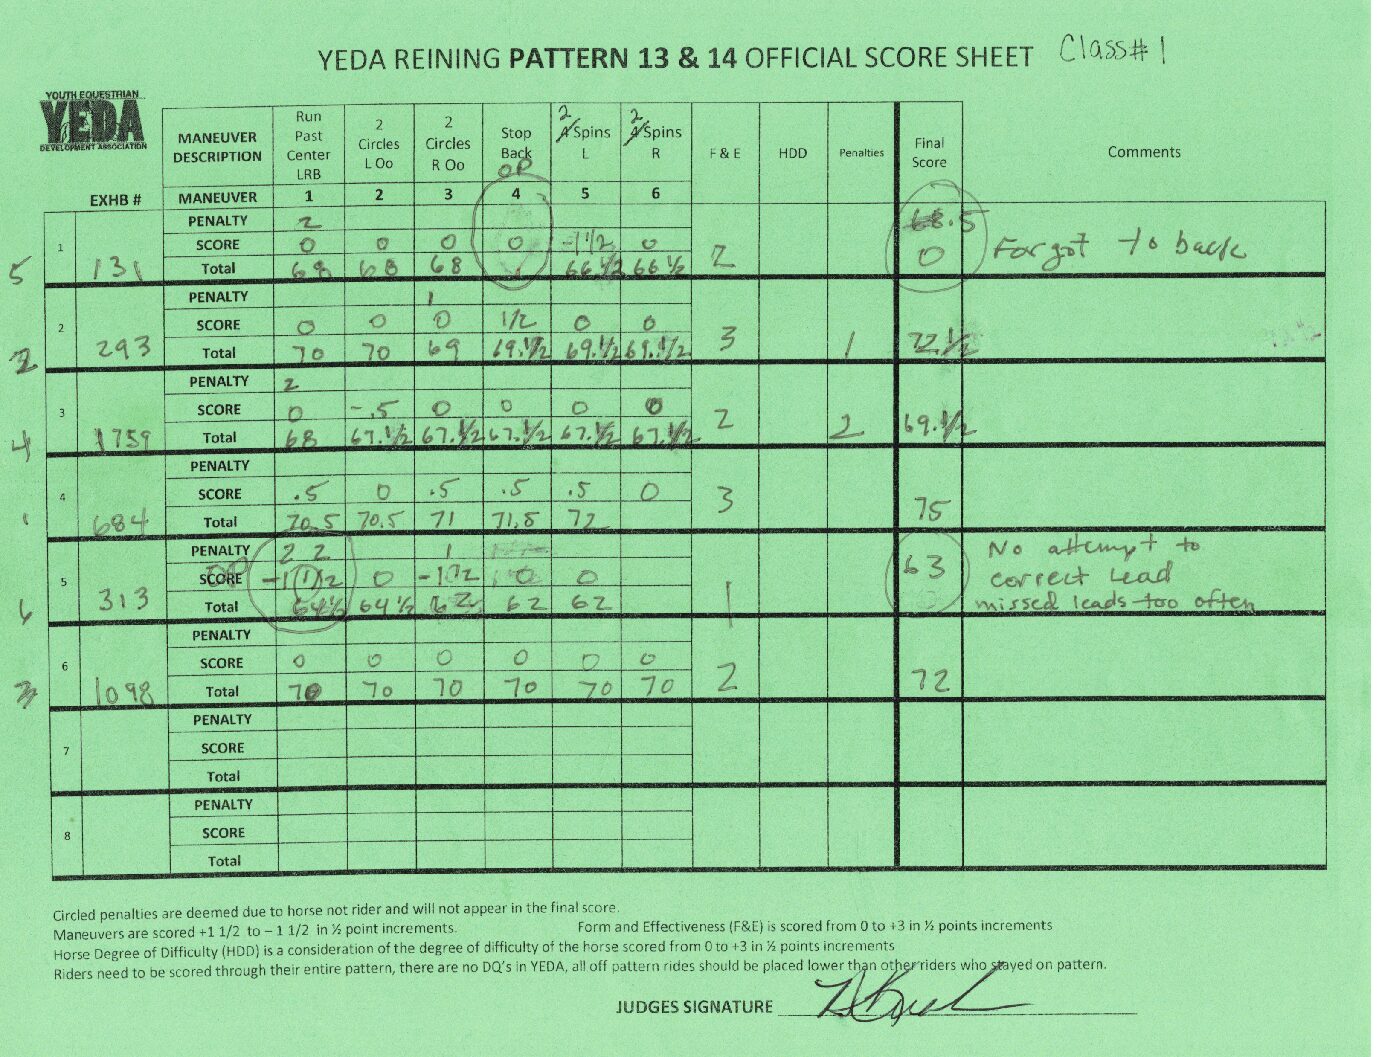 YEDA REINING PATTERN 13 & 14 OFFICIAL SCORE SHEET Class# 1
YOUTH EQUESTRIAN
YEDA
DEVELOPMENT ASSOCIATION
EXHB #
MANEUVER DESCRIPTION
Run Past Center LRB
2 Circles L Oo
2 Circles R Oo
Stop Back OP
2 4 Spins L
2 4 Spins R
F & E
HDD
Penalties
Final Score
Comments
MANEUVER 1 2 3 4 5 6
5 1 131
PENALTY 2
SCORE 0 0 0 0 -1 1/2 0
Total 68 68 68 66 1/2 66 1/2
2 68.5 0 Forgot to back
2 2 293
PENALTY 1
SCORE 0 0 0 1/2 0 0
Total 70 70 69 69.1/2 69.1/2 69.1/2
3 1 72 1/2
4 3 1759
PENALTY 2
SCORE 0 -.5 0 0 0 0
Total 68 67.1/2 67.1/2 67.1/2 67.1/2 67.1/2
2 2 69.1/2
1 4 684
PENALTY
SCORE .5 0 .5 .5 .5 0
Total 70.5 70.5 71 71.5 72
3 75
6 5 313
PENALTY 2 2 1
OP SCORE 0 0 0
Total 64 1/2 64 1/2 62 62 62
1 63
No attempt to
correct lead
missed leads too often
3 6 1098
PENALTY
SCORE 0 0 0 0 0 0
Total 70 70 70 70 70 70
2 72
7
PENALTY
SCORE
Total
8
PENALTY
SCORE
Total
Circled penalties are deemed due to horse not rider and will not appear in the final score.
Maneuvers are scored +1 1/2 to – 1 1/2 in ½ point increments. Form and Effectiveness (F&E) is scored from 0 to +3 in ½ points increments
Horse Degree of Difficulty (HDD) is a consideration of the degree of difficulty of the horse scored from 0 to +3 in ½ points increments
Riders need to be scored through their entire pattern, there are no DQ's in YEDA, all off pattern rides should be placed lower than other riders who stayed on pattern.
JUDGES SIGNATURE